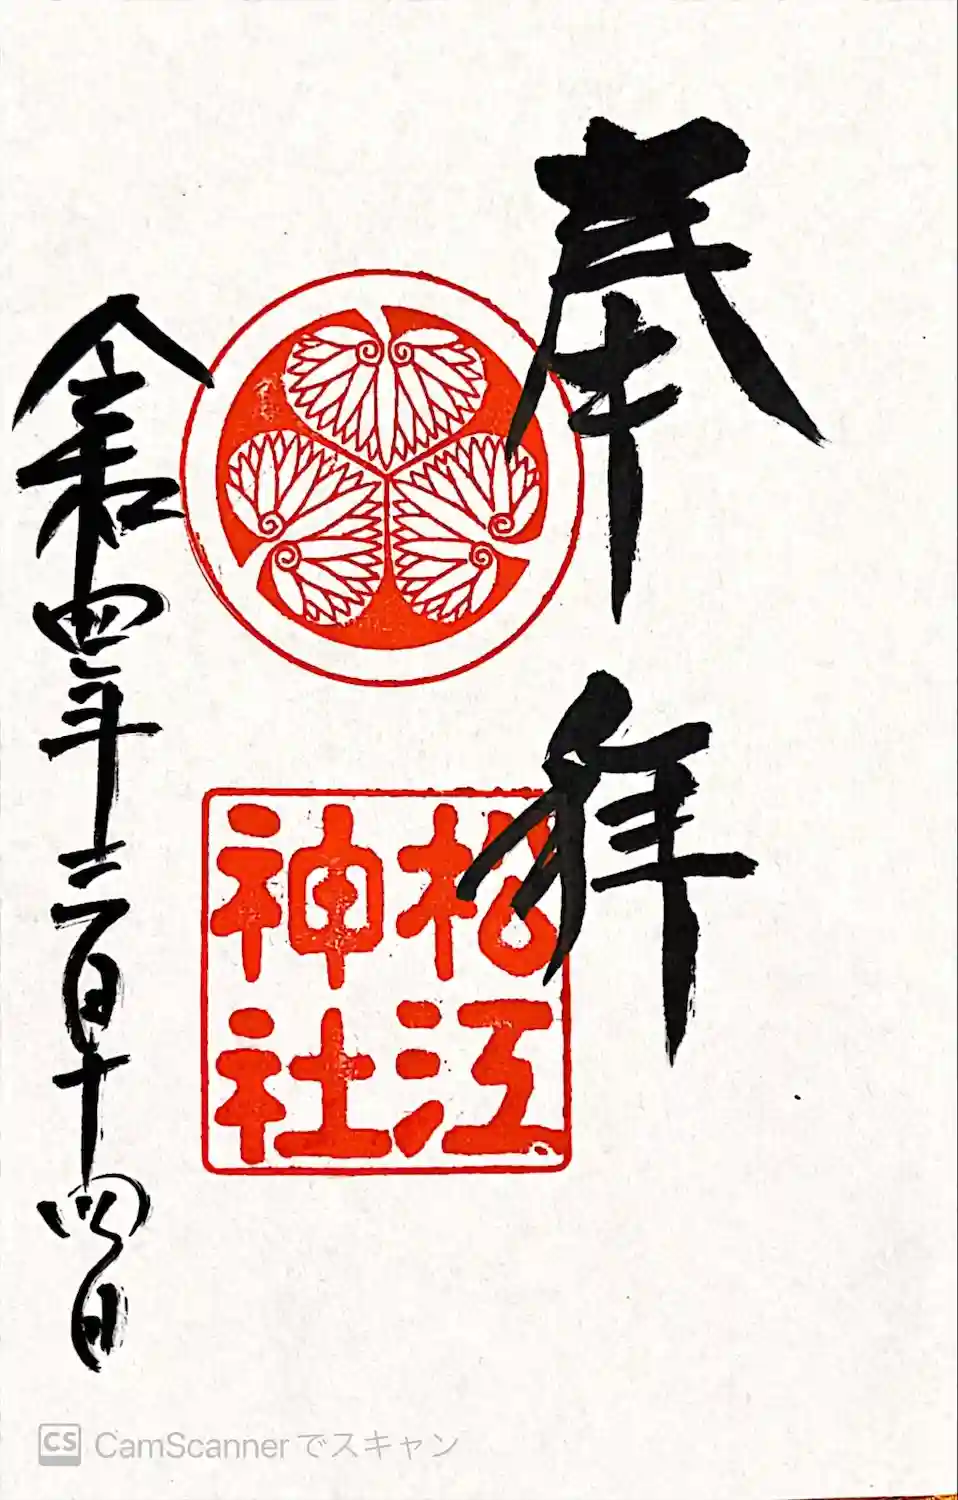 奉拝
松江
神社
令和四年三月十四日
CS CamScannerでスキャン